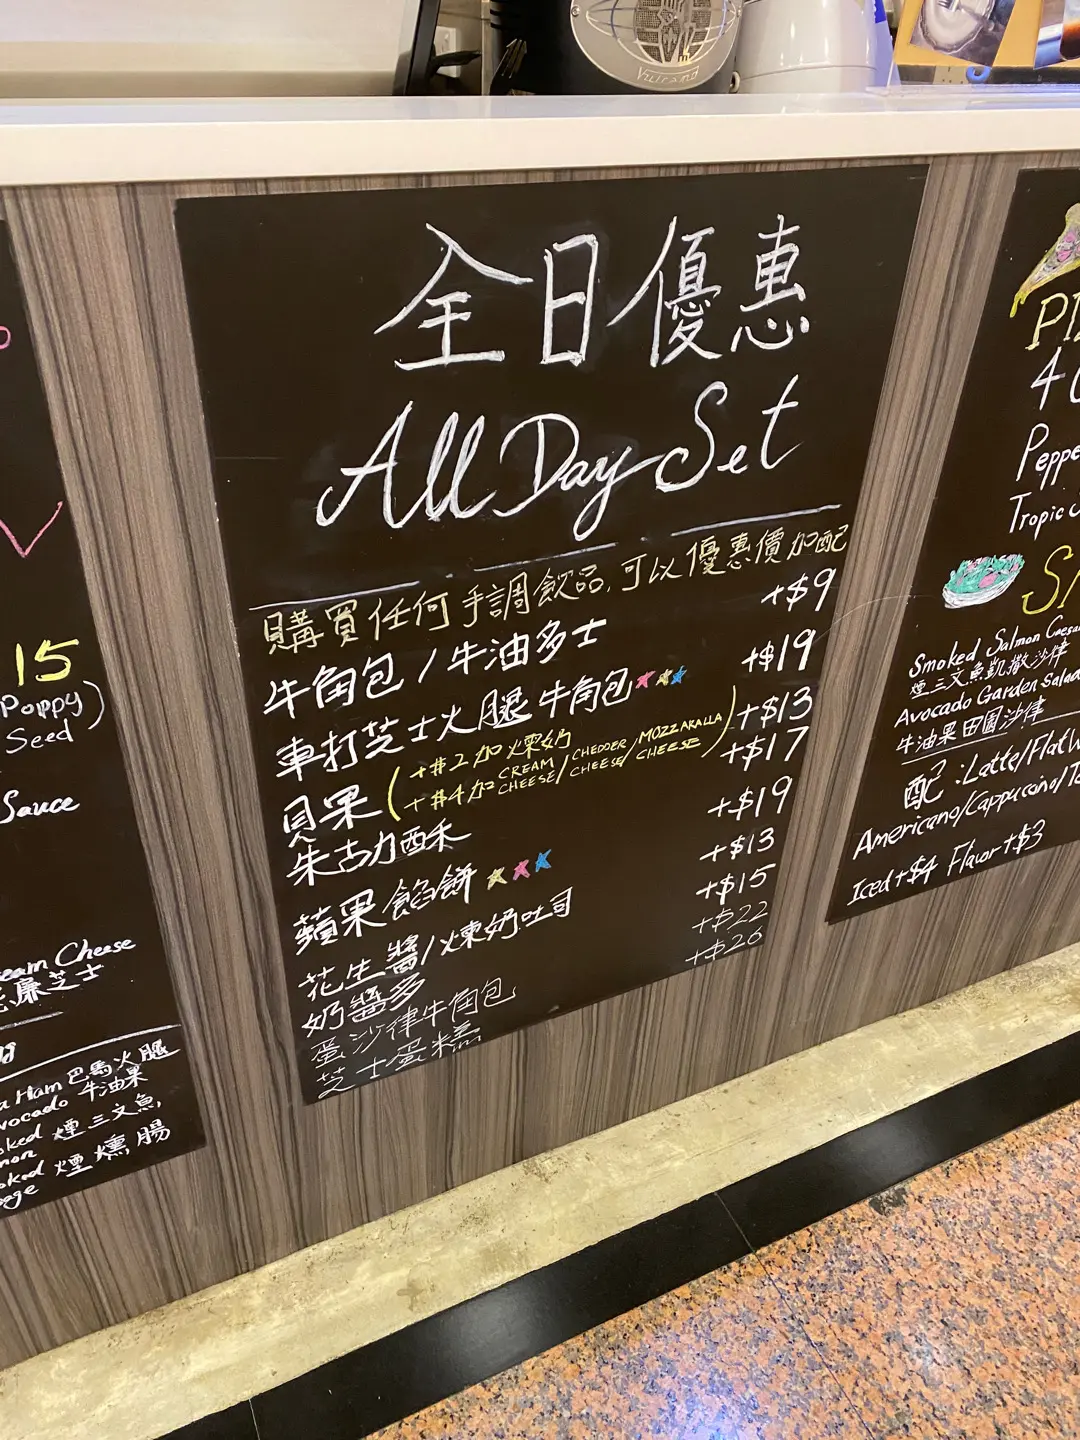 Vulcano
全日優惠
All Day Set
購買任何手調飲品,可以優惠價加配
牛角包/牛油多士 +$9
車打芝士火腿牛角包 +$19
貝果 (+$2加煉奶 +$13
+$4加 CREAM CHEESE/CHEDDER CHEESE/MOZZARALLA CHEESE)
朱古力酥 +$17
蘋果餡餅 +$19
花生醬/煉奶吐司 +$13
奶醬多 +$15
蛋沙律牛角包 +$22
芝士蛋糕 +$26
15
Poppy
Seed)
Sauce
Cheese
廉芝士
Ham 巴馬火腿
牛油果
煙三文魚
煙燻腸
4
Peppe
Tropic
Smoked Salmon Caesa
煙三文魚凱撒沙律
Avocado Garden Salad
牛油果田園沙律
配:Latte/Flat W
Americano/Cappuccino/
Iced+$4 Flavor+$3